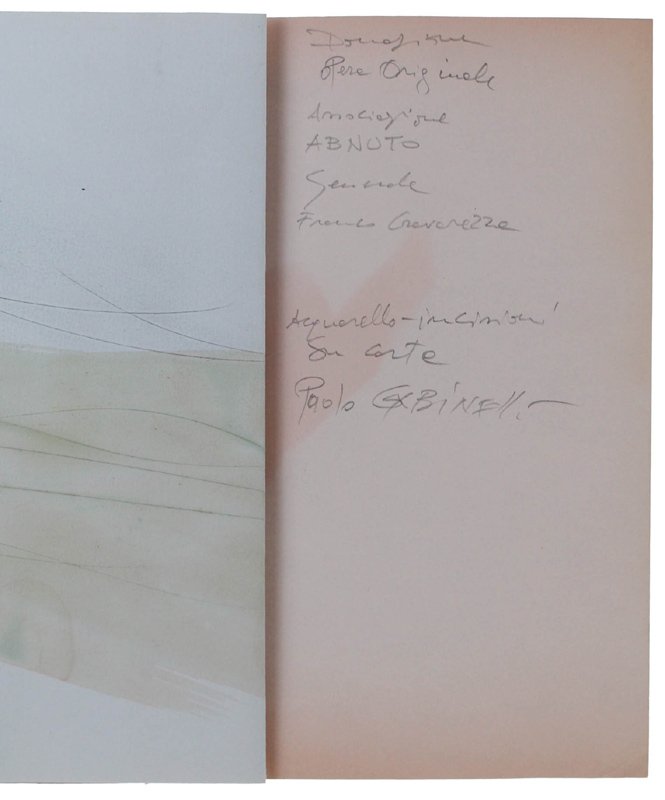 Donazione
Opera Originale
Associazione
ABNUTO
Generale
Franco Gravarezza
Acquarello-incisioni
Su carta
Paolo GUBINELLI